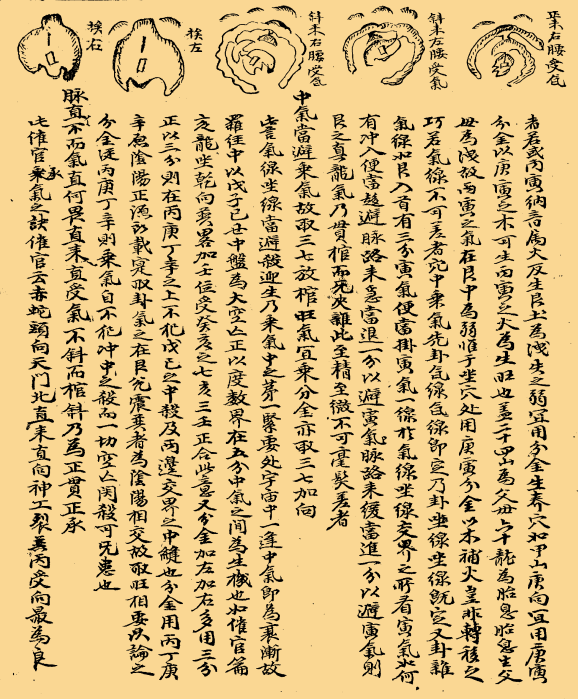 正来右腰受氣
斜来左腰受氣
斜来右腰受氣
挨左
挨右
者若或丙寅納音属火反生艮土為洩生之弱宜用分金生养穴如甲山庚向宜用庚寅
分金以庚寅之木可生丙寅之火為生旺也盖二十四山為父母六十龍為胎息胎息生父
母為洩故丙寅之氣在艮中為弱惟于坐穴处用庚寅分金以木補火豈非轉移之
巧若氣線不可差者穴中乘氣先卦氣線氣線卽定乃卦坐線坐線既定又卦雜
氣線如艮入首有三分寅氣便當掛寅氣一線於氣線坐線交界之所看寅氣從何
有冲入便當趨避脉路来急當退一分以避寅氣脉路来緩當進一分以避寅氣則
艮之真龍氣乃貫棺而无夾雜此至精至微不可毫髮差者
中氣當避乘氣故取三七放棺旺氣宜乘分金亦取三七加向
此言氣線坐線當避殺迎生乃乘氣中之第一緊要处宇宙中一逢中氣卽為衰漸故
羅经中以戊子己丑中盤為大空亡正以度数界在五分中氣之間為生機也如催官篇
亥龍坐乾向巽畧加壬位受癸亥之七亥三壬正合此意又分金加左加右多用三分
正以三分則在丙庚丁辛之上不犯戊己之中殺及两邊交界之中縫也分金用丙丁庚
辛為陰陽正 所載寔取卦氣之在艮兌震巽者為陰陽相交故取旺相要以論之
分金 丙庚丁辛則乘氣自不犯冲中之殺而一切空亡関殺可免患也
脉直不而氣直何畏直来直受氣不斜而棺斜乃為正貫正承
此催官乘氣之訣催官云赤蛇頭向天門北直来直向神工裂兼丙受向最為良
承